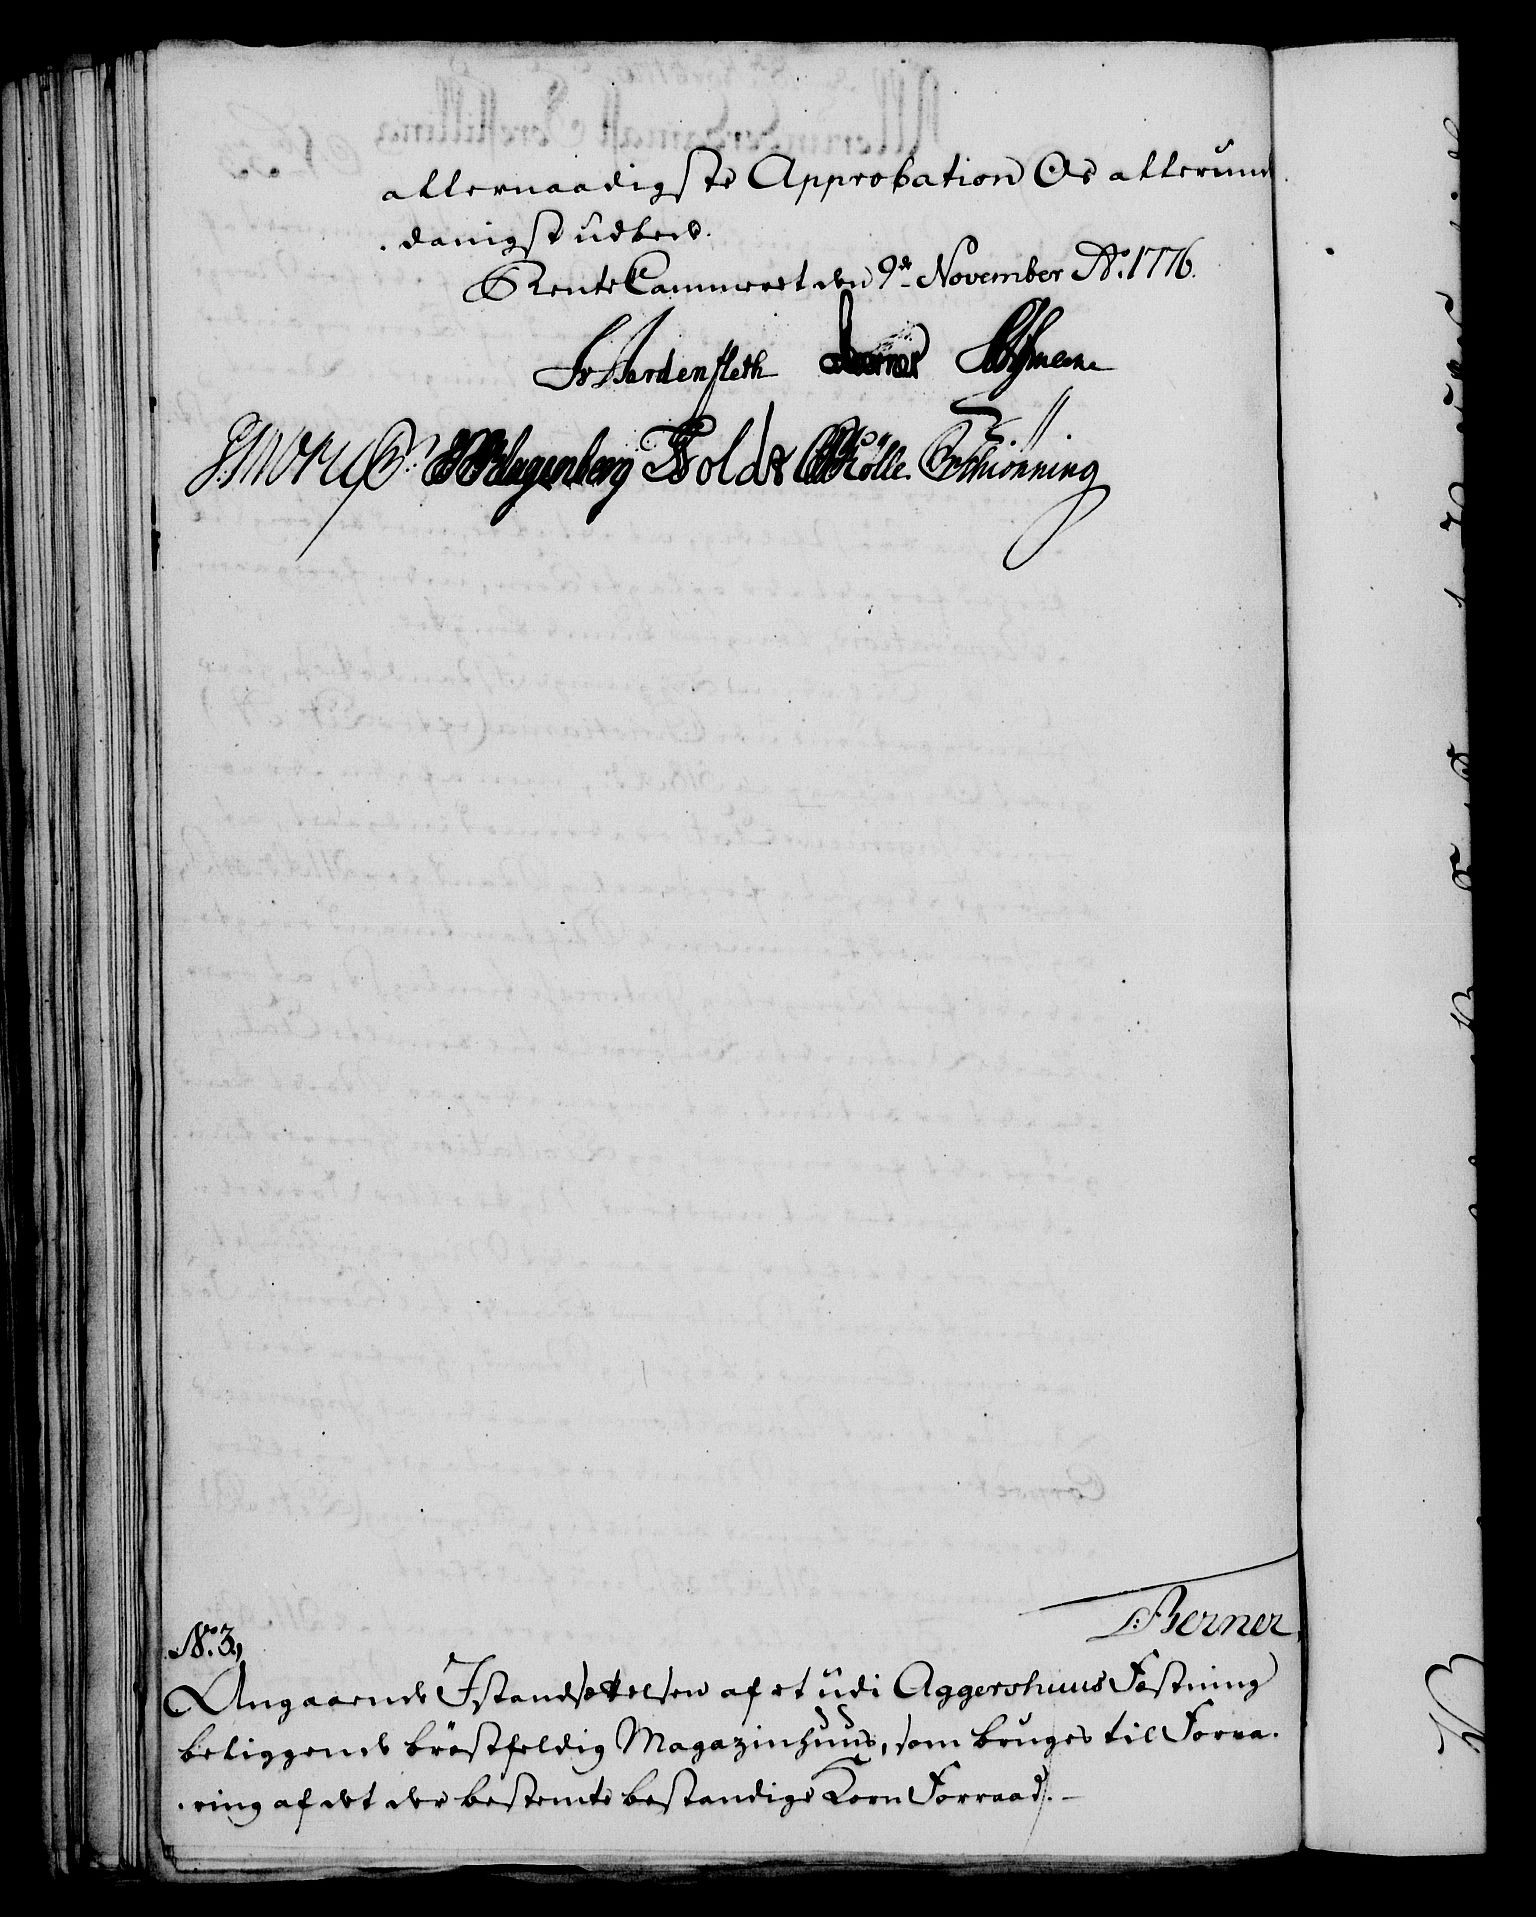 allernaadigste Approbation Os allerun-
danigst udbede.
RenteCammeret den 9de November Ao. 1776.
Fr Hardenfleth Berner
G. Klagenberg Holdt Kölle. Schiönning
S: Berner
No. 3,
Angaaende Istandsættelsen af et udi Aggershuus Fæstning
beliggende bröstfeldig Magazinhuus, som bruges til Forva-
ring af det der bestemte bestandige Korn Forraad. -